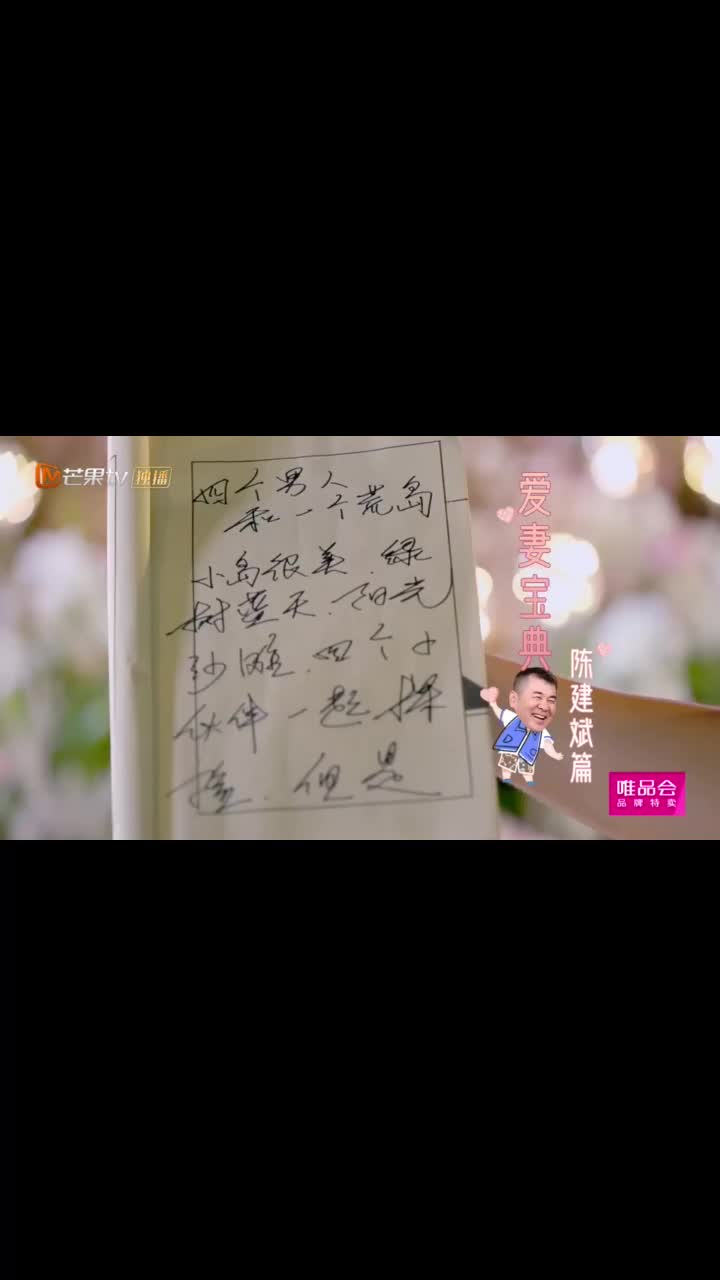 芒果tv 独播
四个男人
和一个荒岛
小岛很美.绿
树蓝天.阳光
沙滩.四个小
伙伴一起探
险.但是
爱妻宝典
陈建斌篇
唯品会
品牌特卖